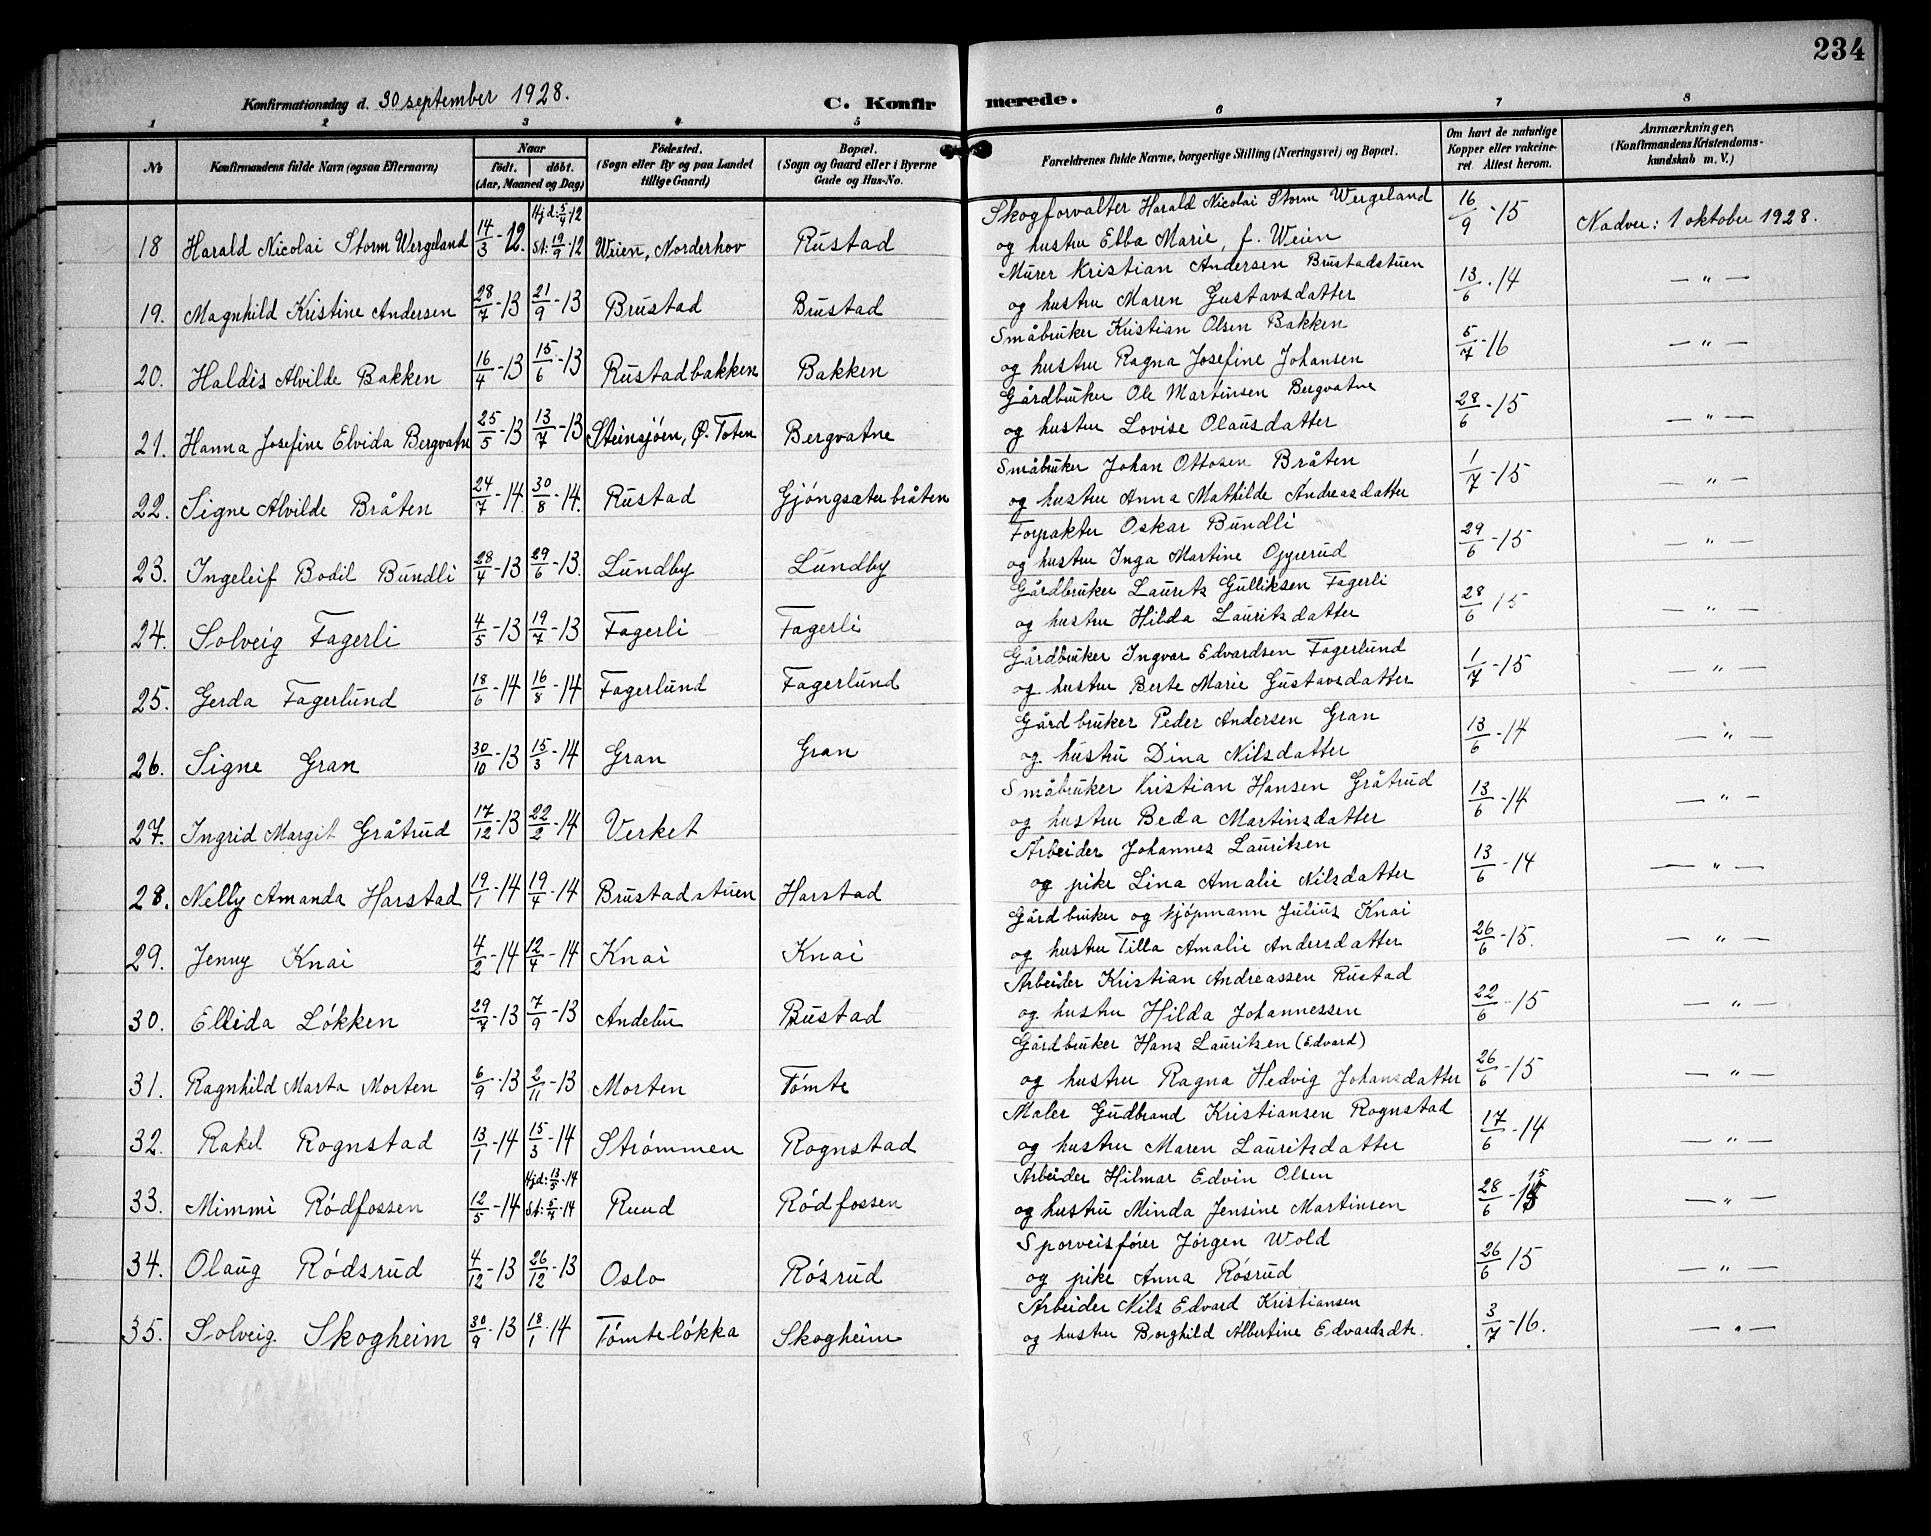 234
Konfirmationsdag d. 30 september 1928.
C. Konfirmerede.
1 2 3 4 5 6 7 8
No
Konfirmandens fulde Navn (ogsaa Efternavn)
Naar
født. døbt.
(Aar, Maaned og Dag)
Födested.
(Sogn eller By og paa Landet
tillige Gaard)
Bopæl.
(Sogn og Gaard eller i Byerne
Gade og Hus-No.
Forældrenes fulde Navne, borgerlige Stilling (Næringsvei) og Bopæl.
Om havt de naturlige
Kopper eller vakcine-
ret. Attest herom.
Anmærkninger.
(Konfirmandens Kristendoms-
kundskab m. V.)
18 Harald Nicolai Storm Wergeland 14/3-12. Hjd: 5/4-12 St: 19/9-12 Weien, Norderhov Rustad Skogforvalter Harald Nicolai Storm Wergeland 16/9-15 Nadver: 1 oktober 1928.
og hustru Ebba Marie, f. Weien
19. Magnhild Kristine Andersen 28/7-13 21/9-13 Brustad Brustad Murer Kristian Andersen Brustadstuen 13/6-14 — " —
og hustru Maren Gustavsdatter
20. Haldis Alvilde Bakken 16/4-13 15/6-13 Rustadbakken Bakken Småbruker Kristian Olsen Bakken 5/7-16 — " —
og hustru Ragna Josefine Johansen
21. Hanna Josefine Elvida Bergvatn 25/5-13 13/7-13 Steinsjøen, Ø. Toten Bergvatne Gårdbruker Ole Martinsen Bergvatne 28/6-15 — " —
og hustru Lovise Olausdatter
22. Signe Alvilde Bråten 24/7-14 30/8-14. Rustad Gjøngsæterbråten Småbruker Johan Ottosen Bråten 1/7-15 — " —
og hustru Anna Mathilde Andreasdatter
23. Ingeleif Bodil Bundli 28/4-13 29/6-13. Lundby Lundby Forpakter Oskar Bundli 29/6-15 — " —
og hustru Inga Martine Opperud
24. Solveig Fagerli 4/5-13 19/7-13 Fagerli Fagerli Gårdbruker Laurits Gulliksen Fagerli 28/6 15 — " —
og hustru Hilda Lauritsdatter
25. Gerda Fagerlund 18/6-14 16/8-14 Fagerlund Fagerlund Gårdbruker Ingvar Edvardsen Fagerlund 1/7-15 — " —
og hustru Berte Marie Gustavsdatter
26. Signe Gran 30/10-13 15/3-14 Gran Gran Gårdbruker Peder Andersen Gran 13/6-14 — " —
og hustru Dina Nilsdatter
27. Ingrid Margit Gråtrud 17/12-13 22/2-14 Verket Småbruker Kristian Hansen Gråtrud 13/6-14 — " —
og hustru Beda Martinsdatter
28. Nelly Amanda Harstad 19/1-14 19/4-14 Brustadstuen Harstad Arbeider Johannes Lauritsen 13/6-14 — " —
og pike Lina Amalie Nilsdatter
29. Jenny Knai 4/2-14 12/4-14 Knai Knai Gårdbruker og kjøpmann Julius Knai 26/6-15. — " —
og hustru Tilla Amalie Andersdatter
30. Ellida Løkken 29/7-13 7/9-13 Andebu Rustad Arbeider Kristian Andreassen Rustad 22/6-15 — " —
og hustru Hilda Johannessen
31. Ragnhild Marta Morten 6/9-13 2/11-13 Morten Tømte Gårdbruker Hans Lauritsen (Edvard) 26/6-15 — " —
og hustru Ragna Hedvig Johansdatter
32. Rakel Rognstad 13/1-14 15/3-14 Strømmen Rognstad Maler Gudbrand Kristiansen Rognstad 17/6-14 — " —
og hustru Maren Lauritsdatter
33. Mimmi Rødfossen 12/5-14 Hjd: 13/5-14 St: 5/7-14 Ruud Rødfossen Arbeider Hilmar Edvin Olsen 28/6-15 — " —
og hustru Minda Jensine Martinsen
34. Olaug Rødsrud 4/12-13 26/12-13 Oslo Røsrud Sporveisfører Jørgen Wold 26/6 15 — " —
og pike Anna Røsrud
35. Solveig Skogheim 30/9-13 18/1-14 Tømteløkka Skogheim Arbeider Nils Edvard Kristiansen 3/7-16. — " —
og hustru Borghild Albertine Edvardsdtr.